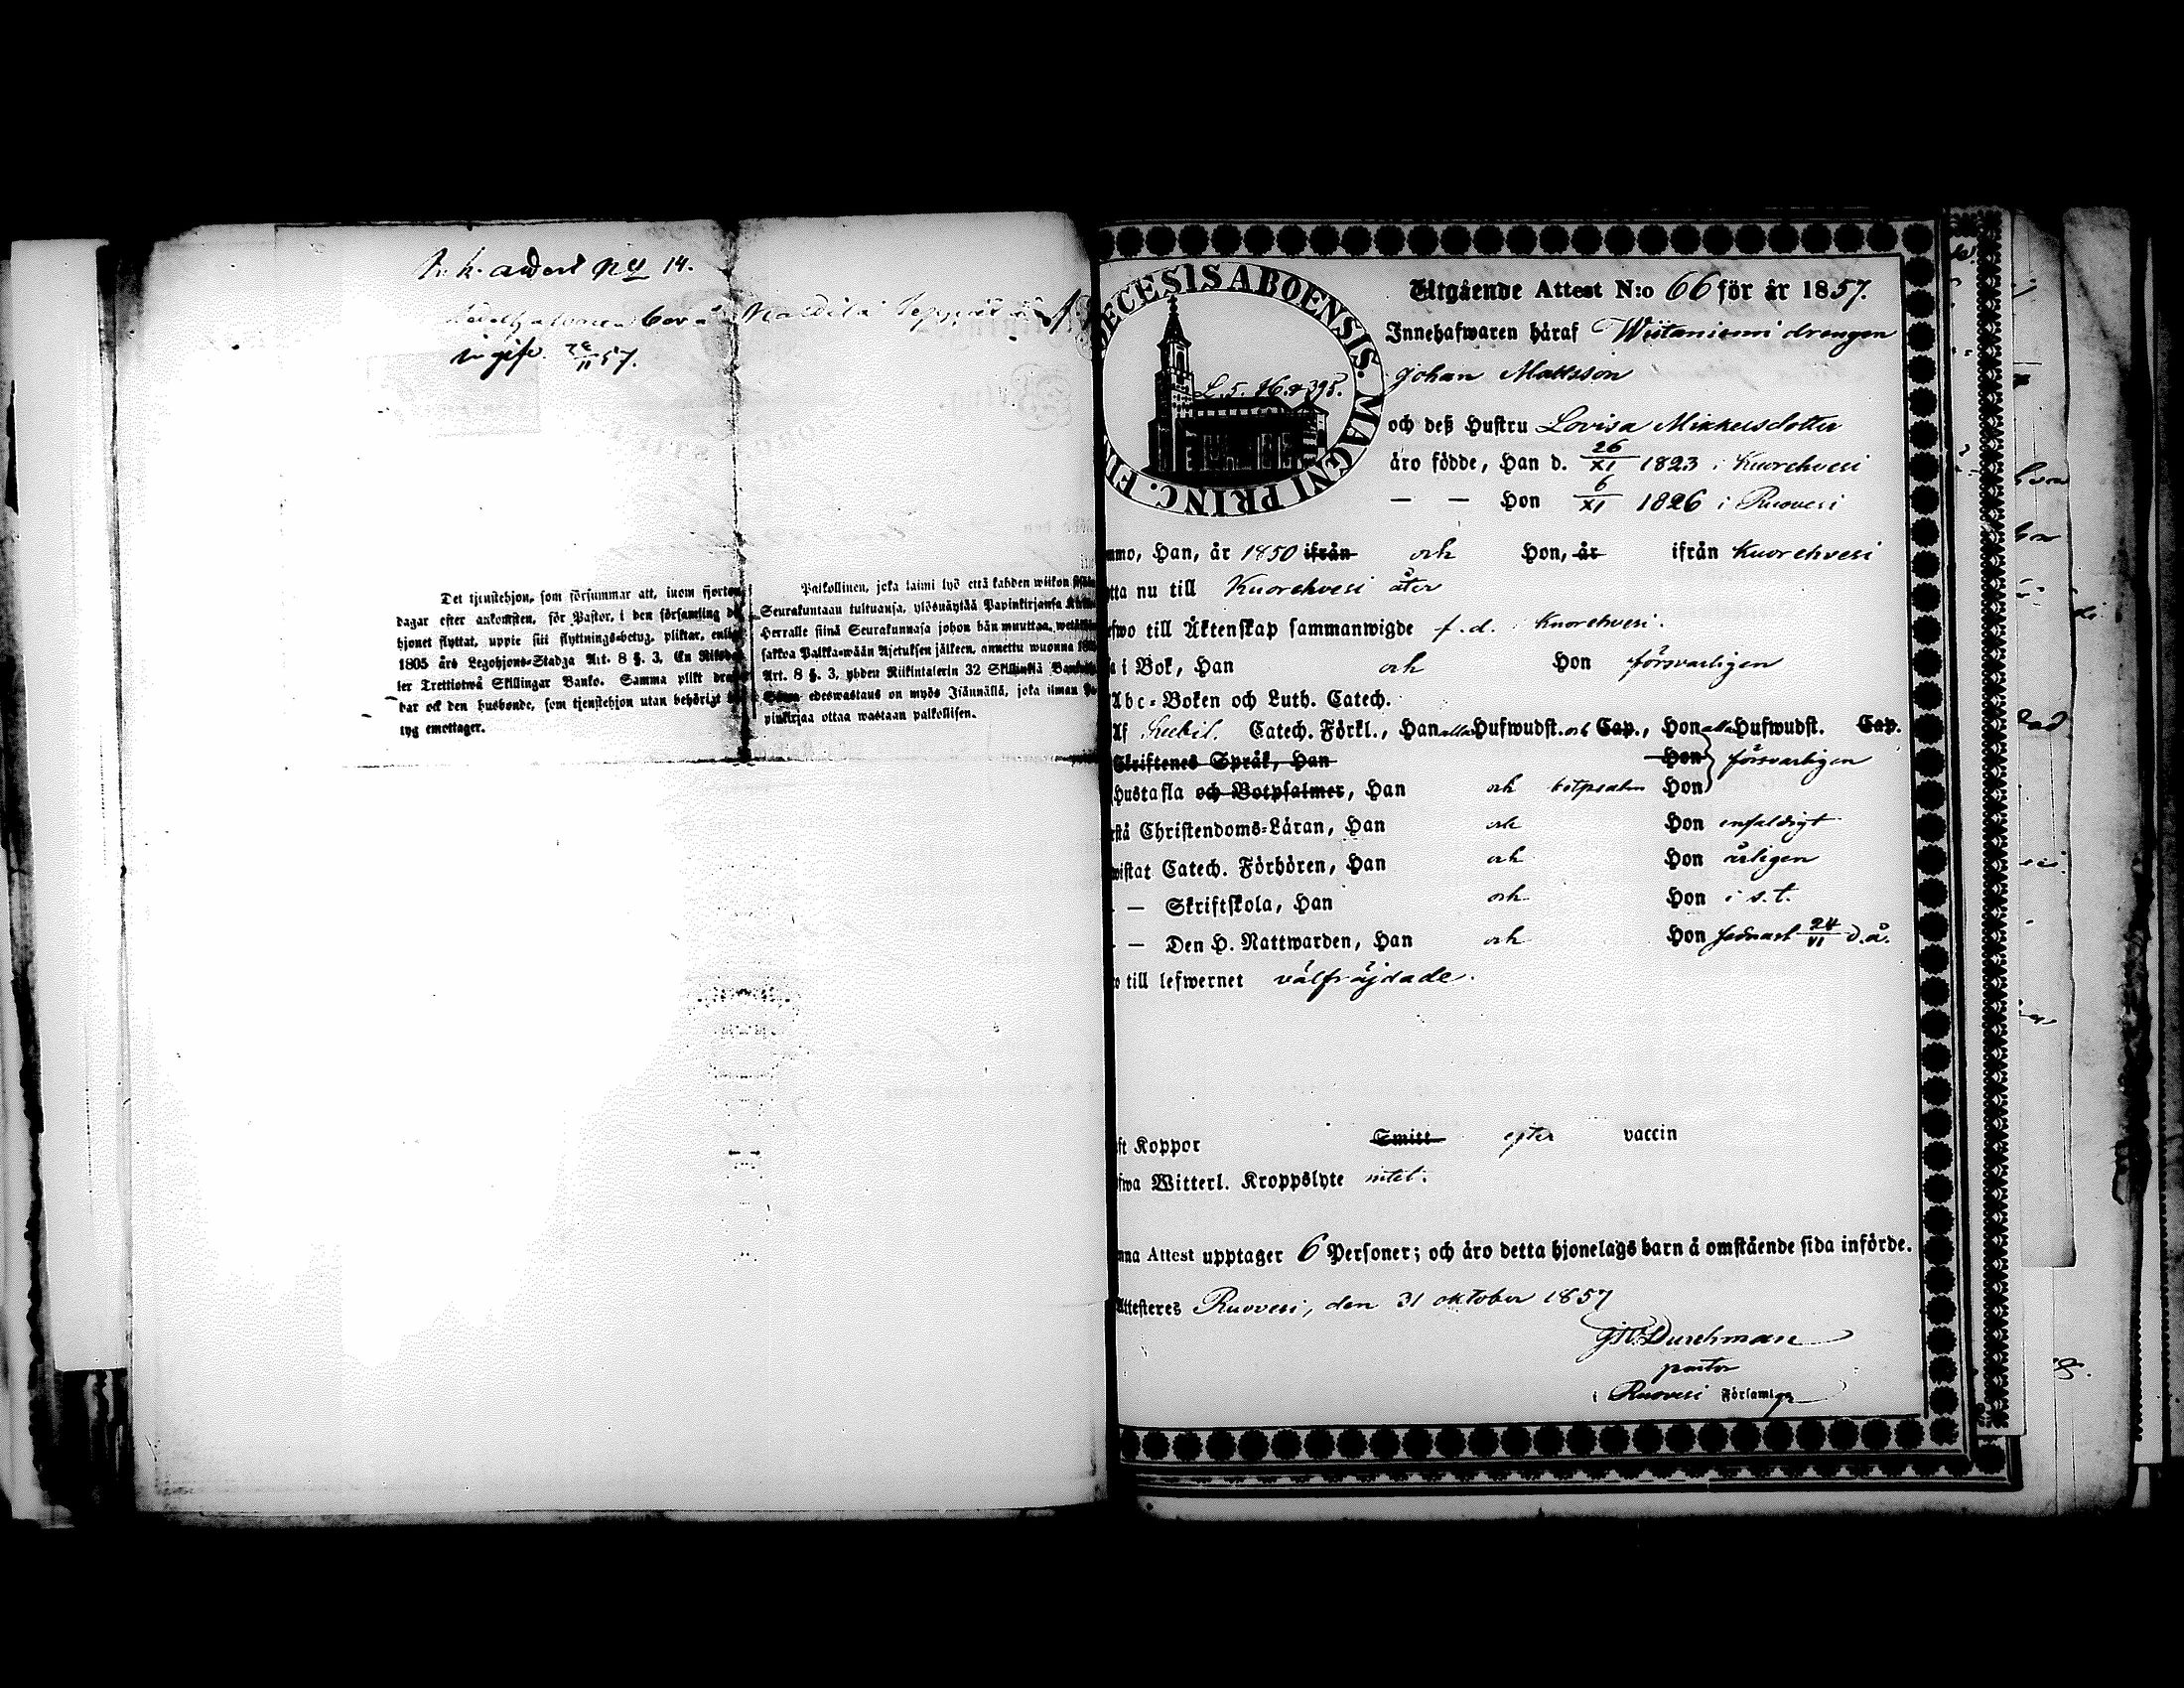 attest No 14.
57.
Det tjenstehjon, som försummar att, inom fjorton
dagar efter ankomsten, för Pastor, i den församling
hjonet flyttat, uppte sitt flyttnings-betyg, pliktar,
1805 års Legohjons-Stadga Art. 8 §. 3, En
ler Trettiotwå Skillingar Banko. Samma plikt
bar ock den husbonde, som tjenstehjon utan behörigt
tyg emottager.
Palkollinen, joka laimi lyö että kahden wiikon
Seurakuntaan tultuansa, ylösnäyttää Papinkirjansa
Herralle siinä Seurakunnasa johon hän muuttaa,
sakkoa Palkka-wään Asetuksen jälkeen, annettu wuonna
Art. 8 §. 3, yhden Riikintalerin 32 Skillinkiä
edeswastaus on myös Isännällä, joka ilman
pinkirjaa ottaa wastaan palkollisen.
ECESIS ABOENSIS. MAGNI PRINC. FI
L. 5. 395.
Utgående Attest N:o 66 för år 1857.
Innehafwaren häraf Wiitaniemi drengen
Johan Mattsson
och deß Hustru Lovisa Mikkelsdotter
äro födde, Han d. 26/XI 1823 i Kuorehvesi
— — Hon 6/XI 1826 i Ruovesi
mo, Han, år 1850 ifrån och Hon, år ifrån Kuorehvesi
tta nu till Kuorehvesi åter
fwo till Äktenskap sammanwigde f. d. i Kuorehvesi.
a i Bok, Han och Hon försvarligen
Abc-Boken och Luth. Catech.
Af Catech. Förkl., Han alla Hufwudst. och Cap., Hon alla Hufwudst. Cap.
Skriftenes Språk, Han Hon försvarligen
Hustafla och Botpsalmer, Han och botpsalm Hon
stå Christendoms-Läran, Han och Hon enfaldigt
wistat Catech. Förhören, Han och Hon årligen
— Skriftskola, Han och Hon i s. t.
— Den H. Nattwarden, Han och Hon sednast 24/VI d. å.
till lefwernet välfräjdade.
ft Koppor Smitt efter vaccin
fwa Witterl. Kroppslyte intet.
nna Attest upptager 6 Personer; och äro detta hjonelags barn å omstående sida införde.
Attesteres Ruovesi, den 31 oktober 1857
Durchman
pastor
i Ruovesi Församlg